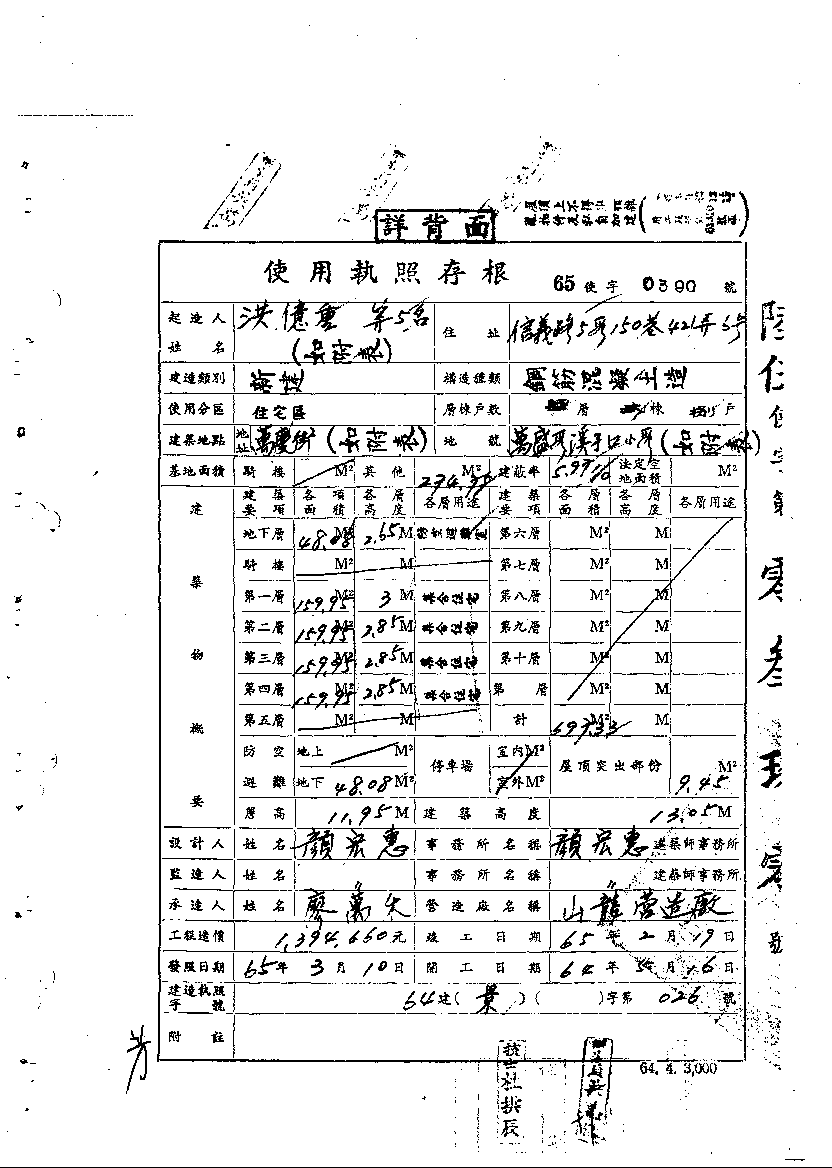 詳背面
使用執照存根 65使字 0390 號
起造人姓名 洪億重 等5名 (如附表) 住址 信義路5段150巷421弄5号
建造類別 新建 構造種類 鋼筋混凝土造
使用分區 住宅區 層棟戶數 層 棟 戶
建築地點 地址 萬慶街 (如附表) 地號 萬盛段溪子口小段 (如附表)
基地面積 騎樓 M² 其他 274.35 M² 建蔽率 法定空地面積 M²
建築物概要 建築要項 各項面積 各層高度 各層用途 建築要項 各層面積 各層高度 各層用途
地下層 48.08 M² 2.65 M 第六層 M² M
騎樓 M² M 第七層 M² M
第一層 159.95 M² 3 M 集合住宅 第八層 M² M
第二層 159.95 M² 2.85 M 集合住宅 第九層 M² M
第三層 159.95 M² 2.85 M 集合住宅 第十層 M² M
第四層 159.95 M² 2.85 M 集合住宅 第 層 M² M
第五層 M² M 計 M²
防空避難 地上 M² 停車場 室內 M² 屋頂突出部份 9.45 M²
地下 48.08 M² 室外 M²
簷高 11.95 M 建築高度 13.05 M
設計人 姓名 顏宏惠 事務所名稱 顏宏惠 建築師事務所
監造人 姓名 〃 事務所名稱 〃 建築師事務所
承造人 姓名 廖萬矢 營造廠名稱 山龍營造廠
工程造價 1,394,660元 竣工日期 65年2月19日
發照日期 65年3月10日 開工日期 64年5月16日
建造執照字號 64建(景)( )字第 026 號
附註
64.4.3,000
芳